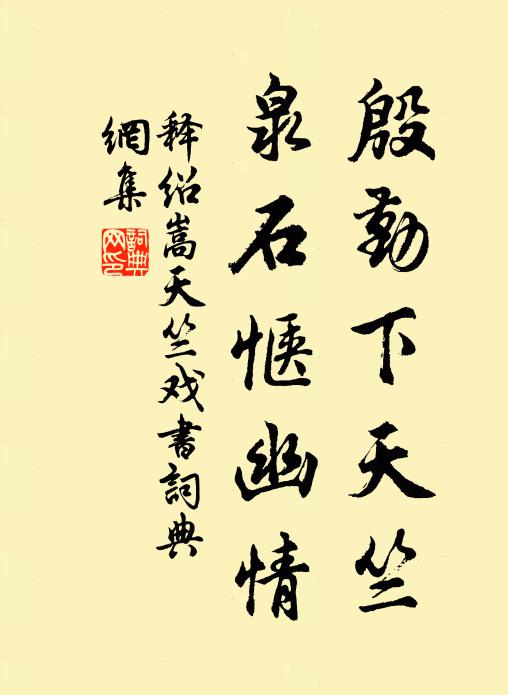 殷勤下天竺
泉石惬幽情
释绍嵩天竺戏书詞典
網集
詞典
网印